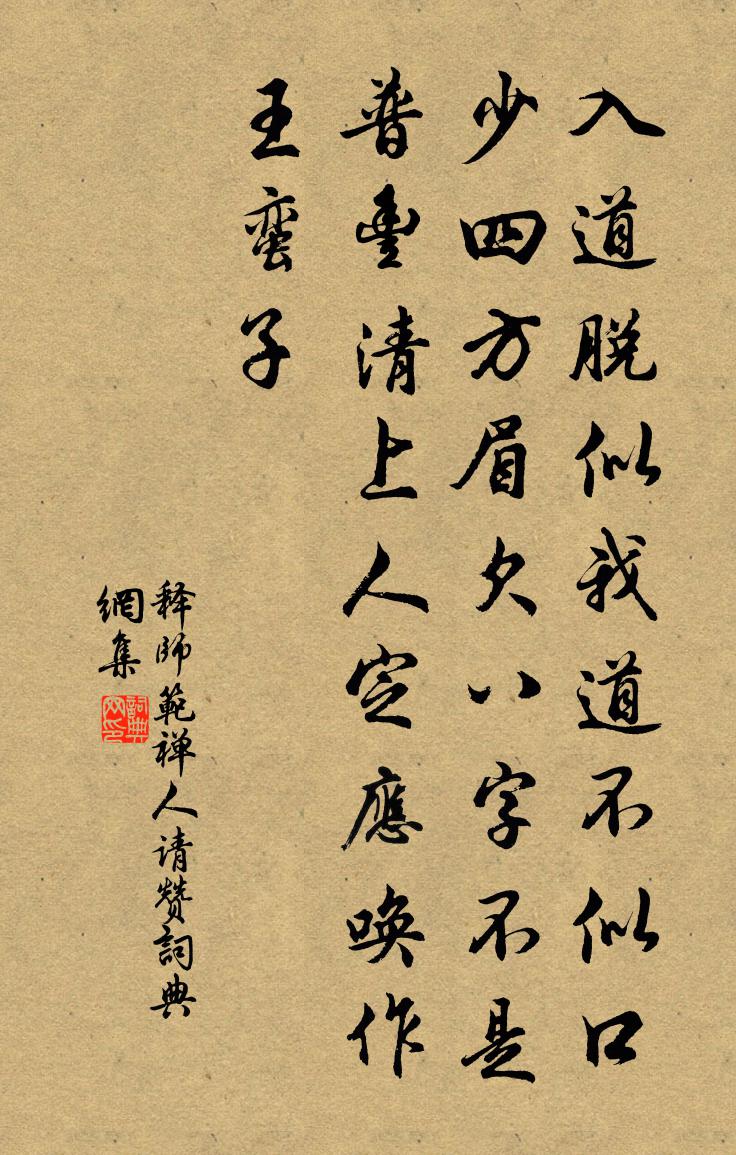 入道脱似我道不似口
少四方眉欠八字不是
普豊清上人定應唤作
王蛮子
释師範禅人请赞詞典
網集
詞典網印